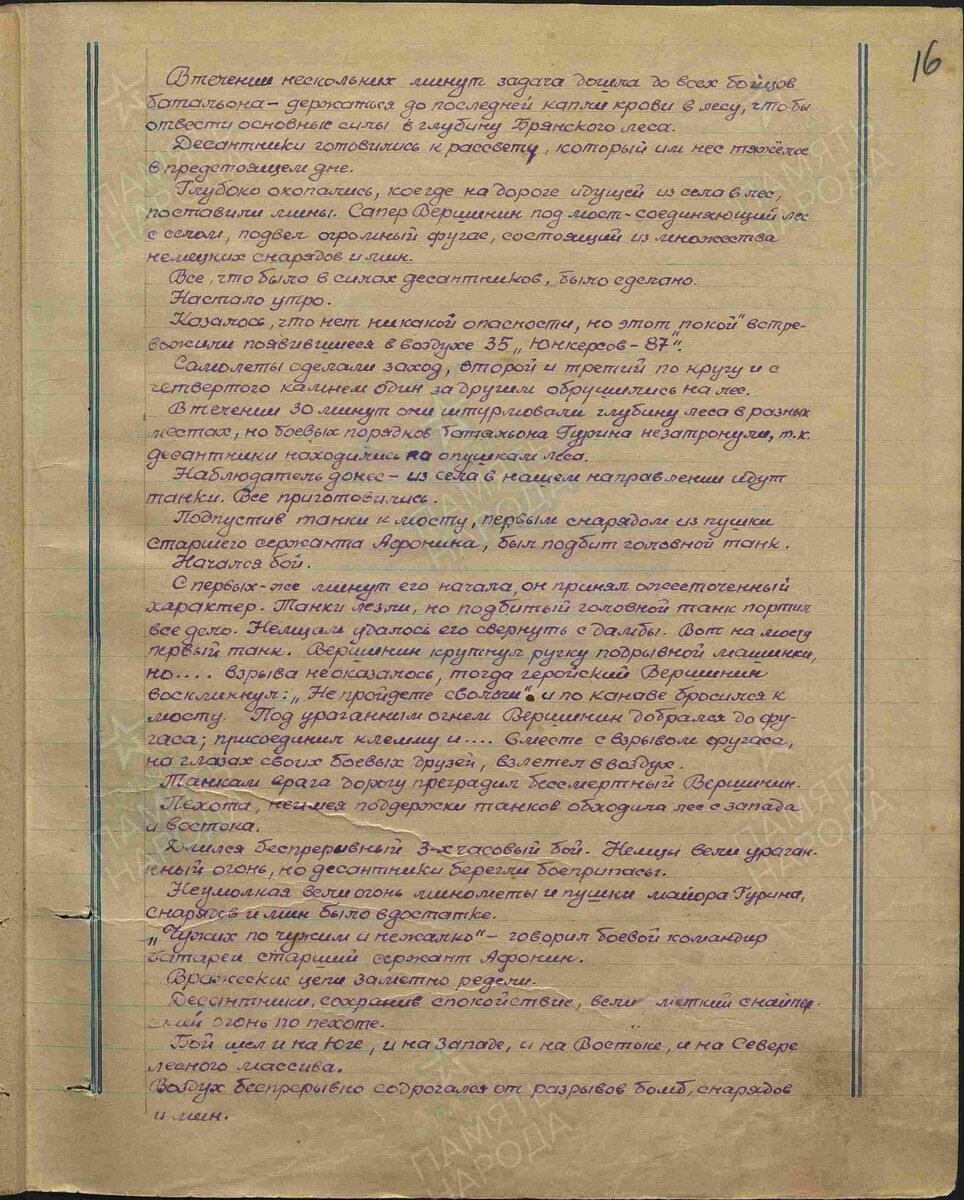 16
В течении нескольких минут задача дошла до всех бойцов
батальона – держаться до последней капли крови в лесу, что-бы
отвести основные силы в глубину Брянского леса.
Десантники готовились к рассвету, который им нес тяжёлое
в предстоящем дне.
Глубоко окопались, кое где на дороге идущей из села в лес,
поставили мины. Сапер Вершинин под мост-соединяющий лес
с селом, подвел огромный фугас, состоящий из множества
немецких снарядов и мин.
Все, что было в силах десантников, было сделано.
Настало утро.
Казалось, что нет никакой опасности, но этот „покой" встре-
вожили появившиеся в воздухе 35 „Юнкерсов – 87".
Самолеты сделали заход, второй и третий по кругу и с
четвертого камнем один за другим обрушились на лес.
В течении 30 минут они штурмовали глубину леса в разных
местах, но боевых порядков батальона Гурина незатронули, т.к.
десантники находились на опушкам леса.
Наблюдатель донес – из села в нашем направлении идут
танки. Все приготовились.
Подпустив танки к мосту, первым снарядом из пушки
старшего сержанта Афонина, был подбит головной танк.
Начался бой.
С первых-же минут его начала, он принял ожесточенный
характер. Танки лезли, но подбитый головной танк портил
все дело. Немцам удалось его свернуть с дамбы. Вот на мосту
первый танк. Вершинин крутнул ручку подрывной машинки,
но.... взрыва неоказалось, тогда геройский Вершинин
воскликнул: „Не пройдете сволочи" и по канаве бросился к
мосту. Под ураганным огнем Вершинин добрался до фу-
гаса; присоединил клемму и.... вместе с взрывом фугаса,
на глазах своих боевых друзей, взлетел в воздух.
Танкам врага дорогу преградил бессмертный Вершинин.
Пехота, неимея поддержки танков обходила лес с запада
и востока.
Длился беспрерывный 3-х часовый бой. Немцы вели ураган-
нный огонь, но десантники берегли боеприпасы.
Неумолкая вели огонь минометы и пушки майора Гурина,
снарядов и мин было вдостатке.
„Чужих по чужим и нежалко" – говорил боевой командир
батареи старший сержант Афонин.
Вражеские цепи заметно редели.
Десантники, сохранив спокойствие, вели меткий снайпер-
ский огонь по пехоте.
Бой шел и на Юге, и на Западе, и на Востоке, и на Севере
лесного массива.
Воздух беспрерывно содрогался от разрывов бомб, снарядов
и мин.
ПАМЯТЬ
НАРОДА
ПАМЯТЬ
НАРОДА
ПАМЯТЬ
НАРОДА
ПАМЯТЬ
НАРОДА
ПАМЯТЬ
НАРОДА
ПАМЯТЬ
НАРОДА